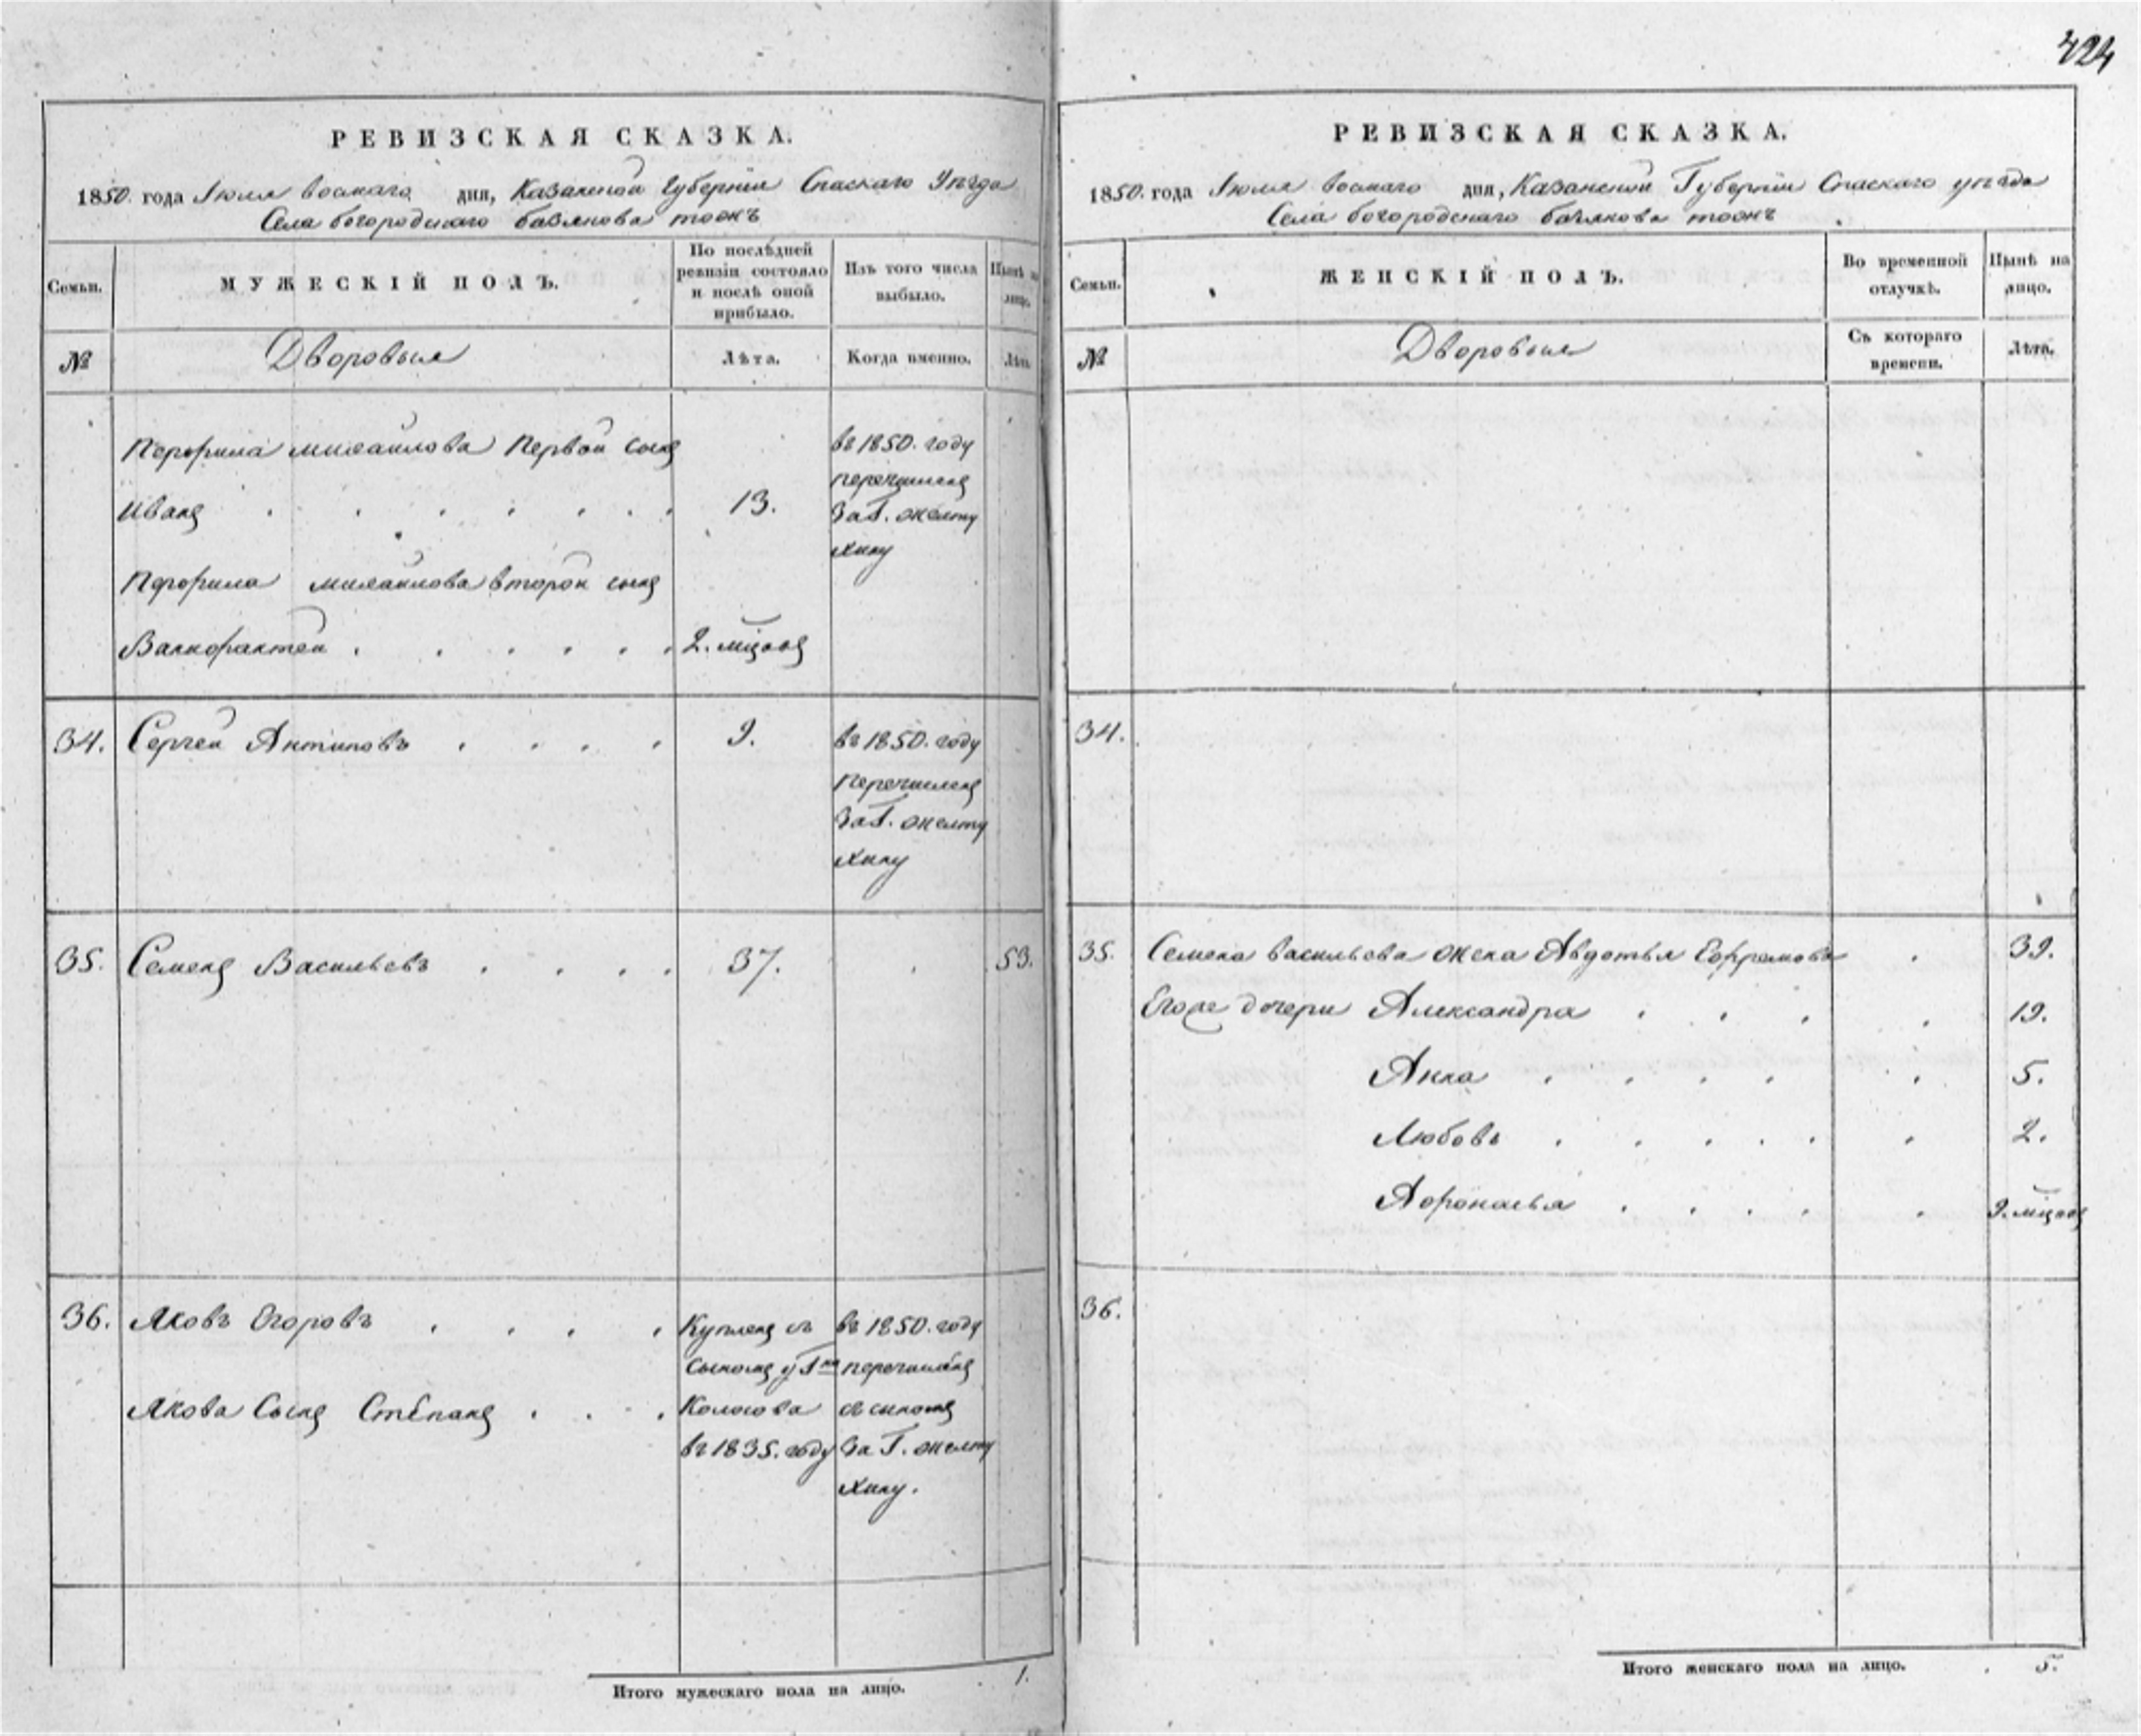 424
РЕВИЗСКАЯ СКАЗКА.
1850. года Июля восмаго дня, Казанской Губернии Спаскаго Уѣзда
Села богородскаго базякова тожъ
Семьи.
МУЖЕСКІЙ ПОЛЪ.
По послѣдней ревизіи состояло и послѣ оной прибыло.
Изъ того числа выбыло.
Нынѣ на лицо.
№
Дворовыя
Лѣта.
Когда именно.
Лѣта.
Порфила михайлова Первой сынъ
въ 1850. году
Иванъ
13.
перечисленъ
за Г. желту
хину
Порфила михайлова второй сынъ
2. мцовъ
34. Сергей Антиповъ 9. въ 1850. году
перечисленъ
за Г. желту
хину
35. Семенъ Васильевъ 37. 53.
36. Яковъ Егоровъ Купленъ съ въ 1850. году
сыномъ у Гна перечисленъ
Якова Сынъ Степанъ Колосова съ сыномъ
въ 1835. году за Г. желту
хину.
Итого мужескаго пола на лицо. 1.
РЕВИЗСКАЯ СКАЗКА.
1850. года Июля восмаго дня, Казанской Губернии Спаскаго уѣзда
Села богородскаго базякова тожъ
Семьи.
ЖЕНСКІЙ ПОЛЪ.
Во временной отлучкѣ.
Нынѣ на лицо.
№
Дворовыя
Съ котораго времени.
Лѣта.
34.
35. Семена васильева жена Авдотья Ефремова 39.
Егоже дочери Александра 19.
Анна 5.
Любовь 2.
Афонасья 9. мцовъ
36.
Итого женскаго пола на лицо. 5.